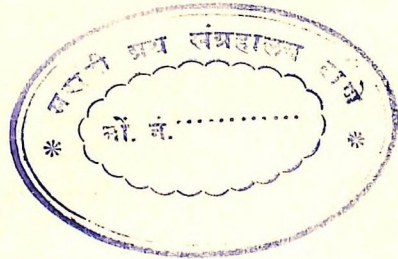 मराठी ग्रंथ संग्रहालय ठाणे
नों. नं. ..............